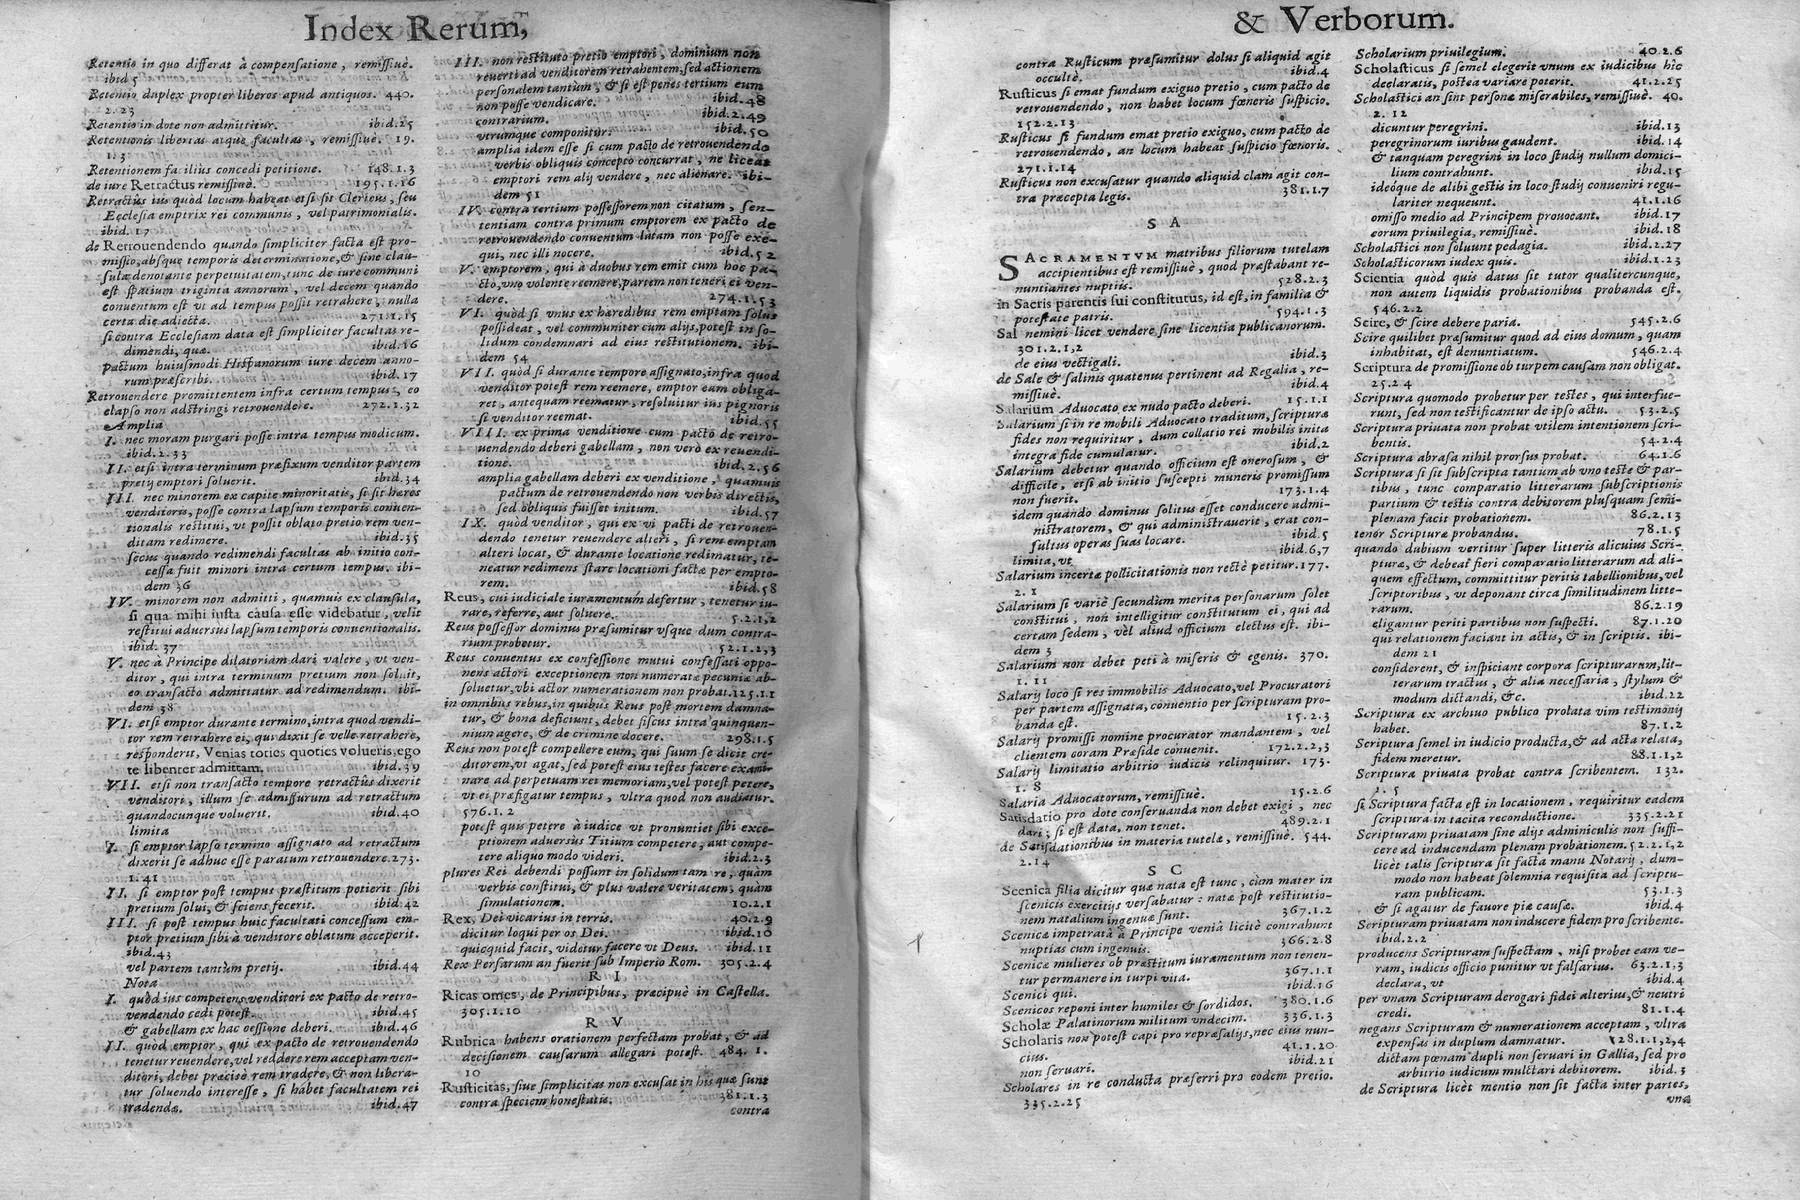 Index Rerum,
Retentio in quo differat à compensatione, remissiuè.
ibid 5
Retentio duplex propter liberos apud antiquos. 440.
2.23
Retentio in dote non admittitur. ibid.25
Retentionis libertas atque facultas, remissiuè. 19.
1.3
Retentionem familius concedi petitione. 148.1.3
de iure Retractus remissiuè. 195.1.16
Retractûs ius quòd locum habeat etsi sit Clericus, seu
Ecclesia emptrix rei communis, vel patrimonialis.
ibid. 17
de Retrouendendo quando simpliciter facta est pro-
missio, absque temporis determinatione, & sine clau-
sula denotante perpetuitatem, tunc de iure communi
est spatium triginta annorum, vel decem quando
conuentum est vt ad tempus possit retrahere, nulla
certa die adiecta. 271.1.15
si contra Ecclesiam data est simpliciter facultas re-
dimendi, quæ. ibid.16
pactum huiusmodi Hispanorum iure decem anno-
rum præscribi. ibid.17
Retrouendere promittentem infra certum tempus, eo
elapso non adstringi retrouendere. 272.1.32
Amplia
I. nec moram purgari posse intra tempus modicum.
ibid.2.33
II. etsi intra terminum præfixum venditor partem
pretij emptori soluerit. ibid.34
III. nec minorem ex capite minoritatis, si sit hæres
venditoris, posse contra lapsum temporis conuen-
tionalis restitui, vt possit oblato pretio rem ven-
ditam redimere. ibid.35
secus quando redimendi facultas ab initio con-
cessa fuit minori intra certum tempus. ibi-
dem 36
IV. minorem non admitti, quamuis ex clausula,
si qua mihi iusta causa esse videbatur, velit
restitui aduersus lapsum temporis conuentionalis.
ibid. 37
V. nec à Principe dilatoriam dari valere, vt ven-
ditor, qui intra terminum pretium non soluit,
eo transacto admittatur ad redimendum. ibi-
dem 38
VI. etsi emptor durante termino, intra quod vendi-
tor rem retrahere ei, qui dixit se velle retrahere,
responderit, Venias toties quoties volueris, ego
te libenter admittam. ibid.39
VII. etsi non transacto tempore retractûs dixerit
venditori, illum se admissurum ad retractum
quandocunque voluerit. ibid.40
limita
I. si emptor lapso termino assignato ad retractum
dixerit se adhuc esse paratum retrouendere. 273.
1.41
II. si emptor post tempus præstitum petierit sibi
pretium solui, & sciens fecerit. ibid.42
III. si post tempus huic facultati concessum em-
ptor pretium sibi à venditore oblatum acceperit.
ibid.43
vel partem tantùm pretij. ibid.44
Nota
I. quòd ius competens venditori ex pacto de retro-
vendendo cedi potest. ibid.45
& gabellam ex hac cessione deberi. ibid.46
II. quòd emptor, qui ex pacto de retrouendendo
tenetur reuendere, vel reddere rem acceptam ven-
ditori, debet præcisè rem tradere, & non libera-
tur soluendo interesse, si habet facultatem rei
tradendæ. ibid.47
III. non restituto pretio emptori, dominium non
reuerti ad venditorem retrahentem, sed actionem
personalem tantum, & si est penes tertium eum
non posse vendicare. ibid.48
contrarium. ibid.2.49
vtrumque componitur. ibid.50
amplia idem esse si cum pacto de retrouendendo
verbis obliquis concepto concurrat, ne liceat
emptori rem alij vendere, nec alienare. ibi-
dem 51
IV. contra tertium possessorem non citatum, sen-
tentiam contra primum emptorem ex pacto de
retrouendendo conuentum latam non posse exe-
qui, nec illi nocere. ibid.52
V. emptorem, qui à duobus rem emit cum hoc pa-
cto, vno volente reemere, partem non teneri ei ven-
dere. 274.1.53
VI. quòd si vnus ex hæredibus rem emptam solus
possideat, vel communiter cum alijs, potest in so-
lidum condemnari ad eius restitutionem. ibi-
dem 54
VII. quòd si durante tempore assignato, infra quod
venditor potest rem reemere, emptor eam obliga-
ret, antequam reematur, resoluitur ius pignoris
si venditor reemat. ibid.55
VIII. ex prima venditione cum pacto de retro-
uendendo deberi gabellam, non verò ex reuendi-
tione. ibid.2.56
amplia gabellam deberi ex venditione, quamuis
pactum de retrouendendo non verbis directis,
sed obliquis fuisset initum. ibid.57
IX. quòd venditor, qui ex vi pacti de retrouen-
dendo tenetur reuendere alteri, si rem emptam
alteri locat, & durante locatione redimatur, te-
neatur redimens stare locationi factæ per empto-
rem. ibid.58
Reus, cui iudiciale iuramentum defertur, tenetur iu-
rare, referre, aut soluere. 5.2.1,2
Reus possessor dominus præsumitur vsque dum contra-
rium probetur. 52.1.2,3
Reus conuentus ex confessione mutui confessati oppo-
nens actori exceptionem non numeratæ pecuniæ ab-
soluetur, vbi actor numerationem non probat. 125.1.1
in omnibus rebus, in quibus Reus post mortem damna-
tur, & bona deficiunt, debet fiscus intra quinquen-
nium agere, & de crimine docere. 298.1.5
Reus non potest compellere eum, qui suum se dicit cre-
ditorem, vt agat, sed potest eius testes facere exami-
nare ad perpetuam rei memoriam, vel potest petere,
vt ei præfigatur tempus, vltra quod non audiatur.
576.1.2
potest quis petere à iudice vt pronuntiet sibi exce-
ptionem aduersus Titium competere, aut compe-
tere aliquo modo videri. ibid.2.3
plures Rei debendi possunt in solidum tam re, quàm
verbis constitui, & plus valere veritatem, quàm
simulationem. 10.2.1
Rex, Dei vicarius in terris. 40.2.9
dicitur loqui per os Dei. ibid.10
quicquid facit, videtur facere vt Deus. ibid.11
Rex Persarum an fuerit sub Imperio Rom. 305.2.4
R I
Ricas omes, de Principibus, præcipuè in Castella.
305.1.10
R V
Rubrica habens orationem perfectam probat, & ad
decisionem causarum allegari potest. 484. 1.
10
Rusticitas, siue simplicitas non excusat in his quæ sunt
contra speciem honestatis. 381.1.3
contra
& Verborum.
contra Rusticum præsumitur dolus si aliquid agit
occultè. ibid.4
Rusticus si emat fundum exiguo pretio, cum pacto de
retrouendendo, non habet locum fœneris suspicio.
152.2.13
Rusticus si fundum emat pretio exiguo, cum pacto de
retrouendendo, an locum habeat suspicio fœnoris.
271.1.14
Rusticus non excusatur quando aliquid clam agit con-
tra præcepta legis. 381.1.7
S A
SACRAMENTVM matribus filiorum tutelam
accipientibus est remissiuè, quod præstabant re-
nuntiantes nuptiis. 528.2.3
in Sacris parentis sui constitutus, id est, in familia &
potestate patris. 594.1.3
Sal nemini licet vendere sine licentia publicanorum.
301.2.1,2
de eius vectigali. ibid.3
de Sale & salinis quatenus pertinent ad Regalia, re-
missiuè. ibid.4
Salarium Aduocato ex nudo pacto deberi. 15.1.1
Salarium si in re mobili Aduocato traditum, scripturæ
fides non requiritur, dum collatio rei mobilis inita
integra fide cumulatur. ibid.2
Salarium debetur quando officium est onerosum, &
difficile, etsi ab initio suscepti muneris promissum
non fuerit. 173.1.4
idem quando dominus solitus esset conducere admi-
nistratorem, & qui administrauerit, erat con-
sultus operas suas locare. ibid.5
limita, vt ibid.6,7
Salarium incertæ pollicitationis non rectè petitur. 177.
2.1
Salarium si variè secundùm merita personarum solet
constitui, non intelligitur constitutum ei, qui ad
certam sedem, vel aliud officium electus est. ibi-
dem 3
Salarium non debet peti à miseris & egenis. 370.
1.11
Salarij loco si res immobilis Aduocato, vel Procuratori
per partem assignata, conuentio per scripturam pro-
banda est. 15.2.3
Salarij promissi nomine procurator mandantem, vel
clientem coram Præside conuenit. 172.2.2,3
Salarij limitatio arbitrio iudicis relinquitur. 173.
1.8
Salaria Aduocatorum, remissiuè. 15.2.6
Satisdatio pro dote conseruanda non debet exigi, nec
dari; si est data, non tenet. 489.2.1
de Satisdationibus in materia tutelæ, remissiuè. 544.
2.14
S C
Scenica filia dicitur quæ nata est tunc, cùm mater in
scenicis exercitijs versabatur: natæ post restitutio-
nem natalium ingenuæ sunt. 367.1.2
Scenicæ impetratâ à Principe veniâ licitè contrahunt
nuptias cum ingenuis. 366.2.8
Scenicæ mulieres ob præstitum iuramentum non tenen-
tur permanere in turpi vita. 367.1.1
Scenici qui. ibid.16
Scenicos reponi inter humiles & sordidos. 380.1.6
Scholæ Palatinorum militum vndecim. 336.1.3
Scholaris non potest capi pro repræsalijs, nec eius nun-
cius. 41.1.20
non seruari. ibid.21
Scholares in re conducta præferri pro eodem pretio.
335.2.25
Scholarium priuilegium. 40.2.6
Scholasticus si semel elegerit vnum ex iudicibus hîc
declaratis, postea variare poterit. 41.2.25
Scholastici an sint personæ miserabiles, remissiuè. 40.
2. 12
dicuntur peregrini. ibid.13
peregrinorum iuribus gaudent. ibid.14
& tanquam peregrini in loco studij nullum domici-
lium contrahunt. ibid.15
ideóque de alibi gestis in loco studij conueniri regu-
lariter nequeunt. 41.1.16
omisso medio ad Principem prouocant. ibid.17
eorum priuilegia, remissiuè. ibid.18
Scholastici non soluunt pedagia. ibid.2.27
Scholasticorum iudex quis. ibid.1.23
Scientia quòd quis datus sit tutor qualitercunque,
non autem liquidis probationibus probanda est.
546.2.2
Scire, & scire debere paria. 545.2.6
Scire quilibet præsumitur quod ad eius domum, quam
inhabitat, est denuntiatum. 546.2.4
Scriptura de promissione ob turpem causam non obligat.
25.2 4
Scriptura quomodo probetur per testes, qui interfue-
runt, sed non testificantur de ipso actu. 53.2.5
Scriptura priuata non probat vtilem intentionem scri-
bentis. 54.2.4
Scriptura abrasa nihil prorsus probat. 64.1.6
Scriptura si sit subscripta tantum ab vno teste & par-
tibus, tunc comparatio litterarum subscriptionis
partium & testis contra debitorem plusquam semi-
plenam facit probationem. 86.2.13
tenor Scripturæ probandus. 78.1.5
quando dubium vertitur super litteris alicuius Scri-
pturæ, & debeat fieri comparatio litterarum ad ali-
quem effectum, committitur peritis tabellionibus, vel
scriptoribus, vt deponant circa similitudinem litte-
rarum. 86.2.19
eligantur periti partibus non suspecti. 87.1.20
qui relationem faciant in actis, & in scriptis. ibi-
dem 21
considerent, & inspiciant corpora scripturarum, lit-
terarum tractus, & alia necessaria, stylum &
modum dictandi, &c. ibid.22
Scriptura ex archiuo publico prolata vim testimonij
habet. 87.1.2
Scriptura semel in iudicio producta, & ad acta relata,
fidem meretur. 88.1.1,2
Scriptura priuata probat contra scribentem. 132.
1. 5
si Scriptura facta est in locationem, requiritur eadem
scriptura in tacita reconductione. 335.2.21
Scripturam priuatam sine alijs adminiculis non suffi-
cere ad inducendam plenam probationem. 52.2.1,2
licèt talis scriptura sit facta manu Notarij, dum-
modo non habeat solemnia requisita ad scriptu-
ram publicam. 53.1.3
& si agatur de fauore piæ causæ. ibid.4
Scripturam priuatam non inducere fidem pro scribente.
ibid.2.2
producens Scripturam suspectam, nisi probet eam ve-
ram, iudicis officio punitur vt falsarius. 63.2.1,3
declara, vt ibid.4
per vnam Scripturam derogari fidei alterius, & neutri
credi. 81.1.4
negans Scripturam & numerationem acceptam, vltra
expensas in duplum damnatur. 128.1.1,2,4
dictam pœnam dupli non seruari in Gallia, sed pro
arbitrio iudicum mulctari debitorem. ibid.3
de Scriptura licèt mentio non sit facta inter partes,
vna